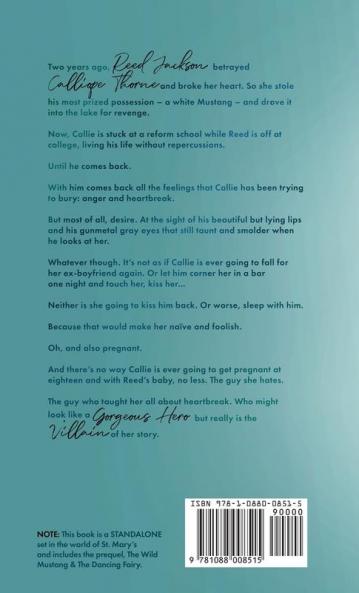 Two years ago, Reed Jackson betrayed
Calliope Thorne and broke her heart. So she stole
his most prized possession – a white Mustang – and drove it
into the lake for revenge.
Now, Callie is stuck at a reform school while Reed is off at
college, living his life without repercussions.
Until he comes back.
With him comes back all the feelings that Callie has been trying
to bury: anger and heartbreak.
But most of all, desire. At the sight of his beautiful but lying lips
and his gunmetal gray eyes that still taunt and smolder when
he looks at her.
Whatever though. It's not as if Callie is ever going to fall for
her ex-boyfriend again. Or let him corner her in a bar
one night and touch her, kiss her...
Neither is she going to kiss him back. Or worse, sleep with him.
Because that would make her naïve and foolish.
Oh, and also pregnant.
And there's no way Callie is ever going to get pregnant at
eighteen and with Reed's baby, no less. The guy she hates.
The guy who taught her all about heartbreak. Who might
look like a Gorgeous Hero but really is the
Villain of her story.
ISBN 978-1-0880-0851-5
90000
9 781088 008515
NOTE: This book is a STANDALONE
set in the world of St. Mary's
and includes the prequel, The Wild
Mustang & The Dancing Fairy.